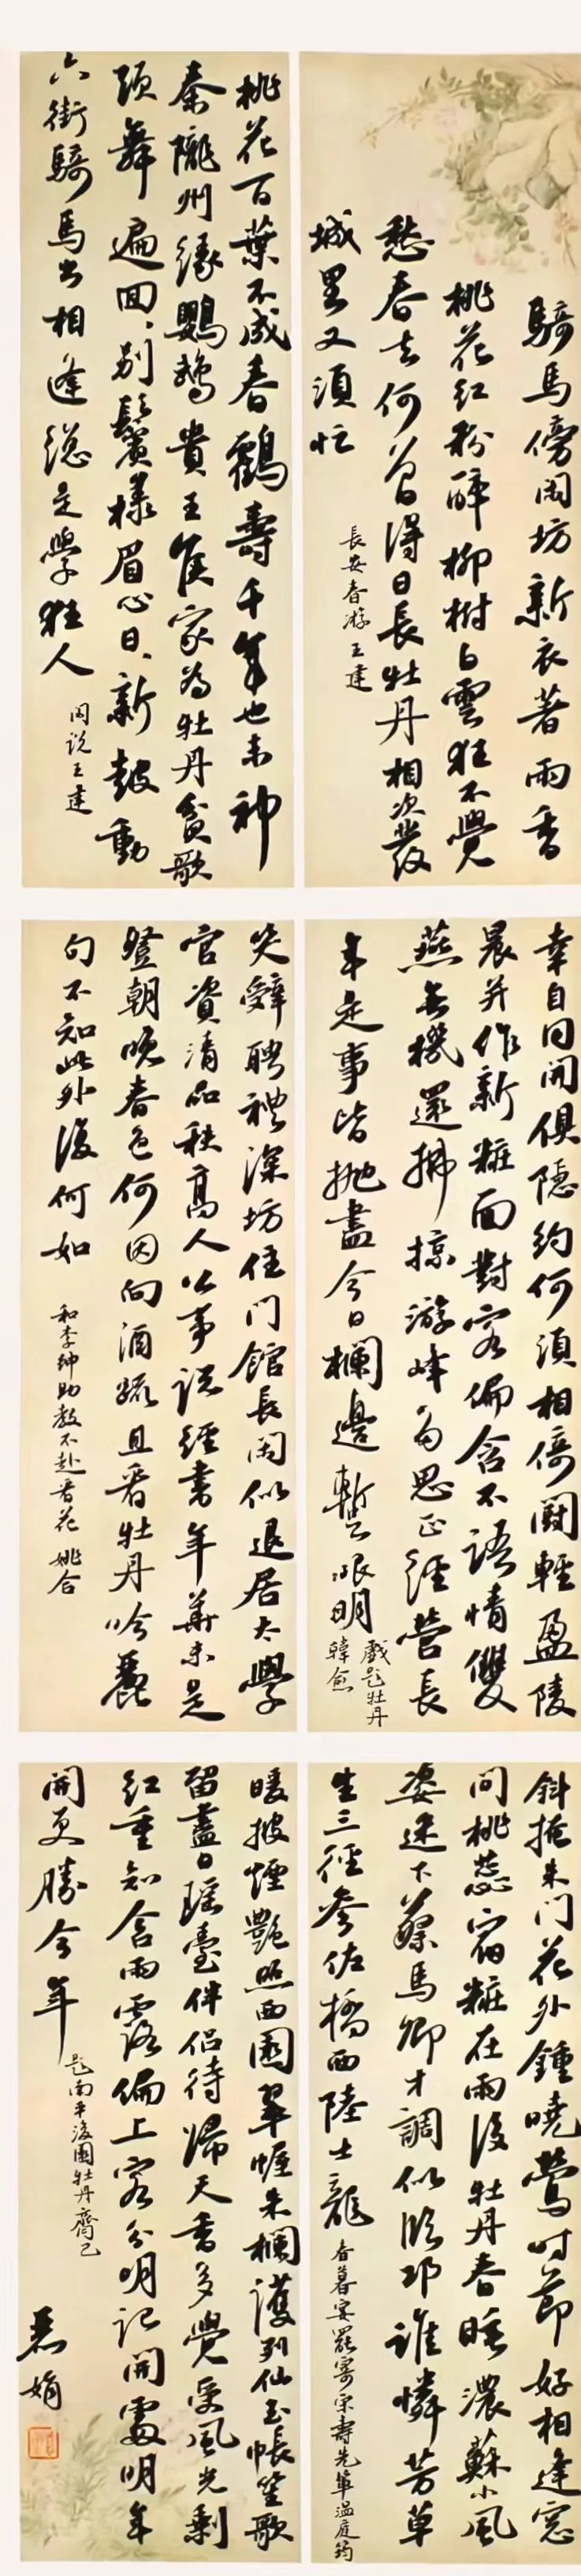 騎馬傍閑坊新衣著雨香
桃花紅粉醉柳樹白雲狂不覺
愁春去何曾得日長牡丹相次發
城里又須忙
長安春游王建
桃花百葉不成春鶴壽千年也未神
秦隴州緣鸚鵡貴王侯家為牡丹貧歌
頭舞遍回、别鬢樣眉心日、新鼓動
六街騎馬出相逢總是學狂人
閑说王建
幸自同開俱隱約何須相倚鬥輕盈陵
晨并作新粧面對客偏含不語情雙
燕無機還拂掠游蜂多思正經營長
年是事皆抛盡今日欄邊暫眼明
戲题牡丹
韓愈
笑辭聘禮深坊住門館長閑似退居太學
官資清品秩高人公事說經書年華未是
登朝晚春色何因向酒疏且看牡丹吟麗
句不知此外復何如
和李紳助教不赴看花 姚合
斜掩朱門花外鐘曉鶯時節好相逢窗
間桃蕊宿粧在雨後牡丹春睡濃蘇小風
姿迷下蔡馬卿才調似臨邛誰憐芳草
生三徑參佐橋西陸士龍
春暮宴罷寄宋壽先輩溫庭筠
暖披煙艷照西園翠幄朱欄護列仙玉帳笙歌
留盡日瑤臺伴侣待歸天香多覺受風光剩
紅重知含雨露偏上客分明記開處明年
開更勝今年
题南平後園牡丹齊己